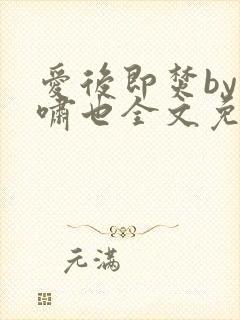 爱后即焚by
啸也全文免
元满